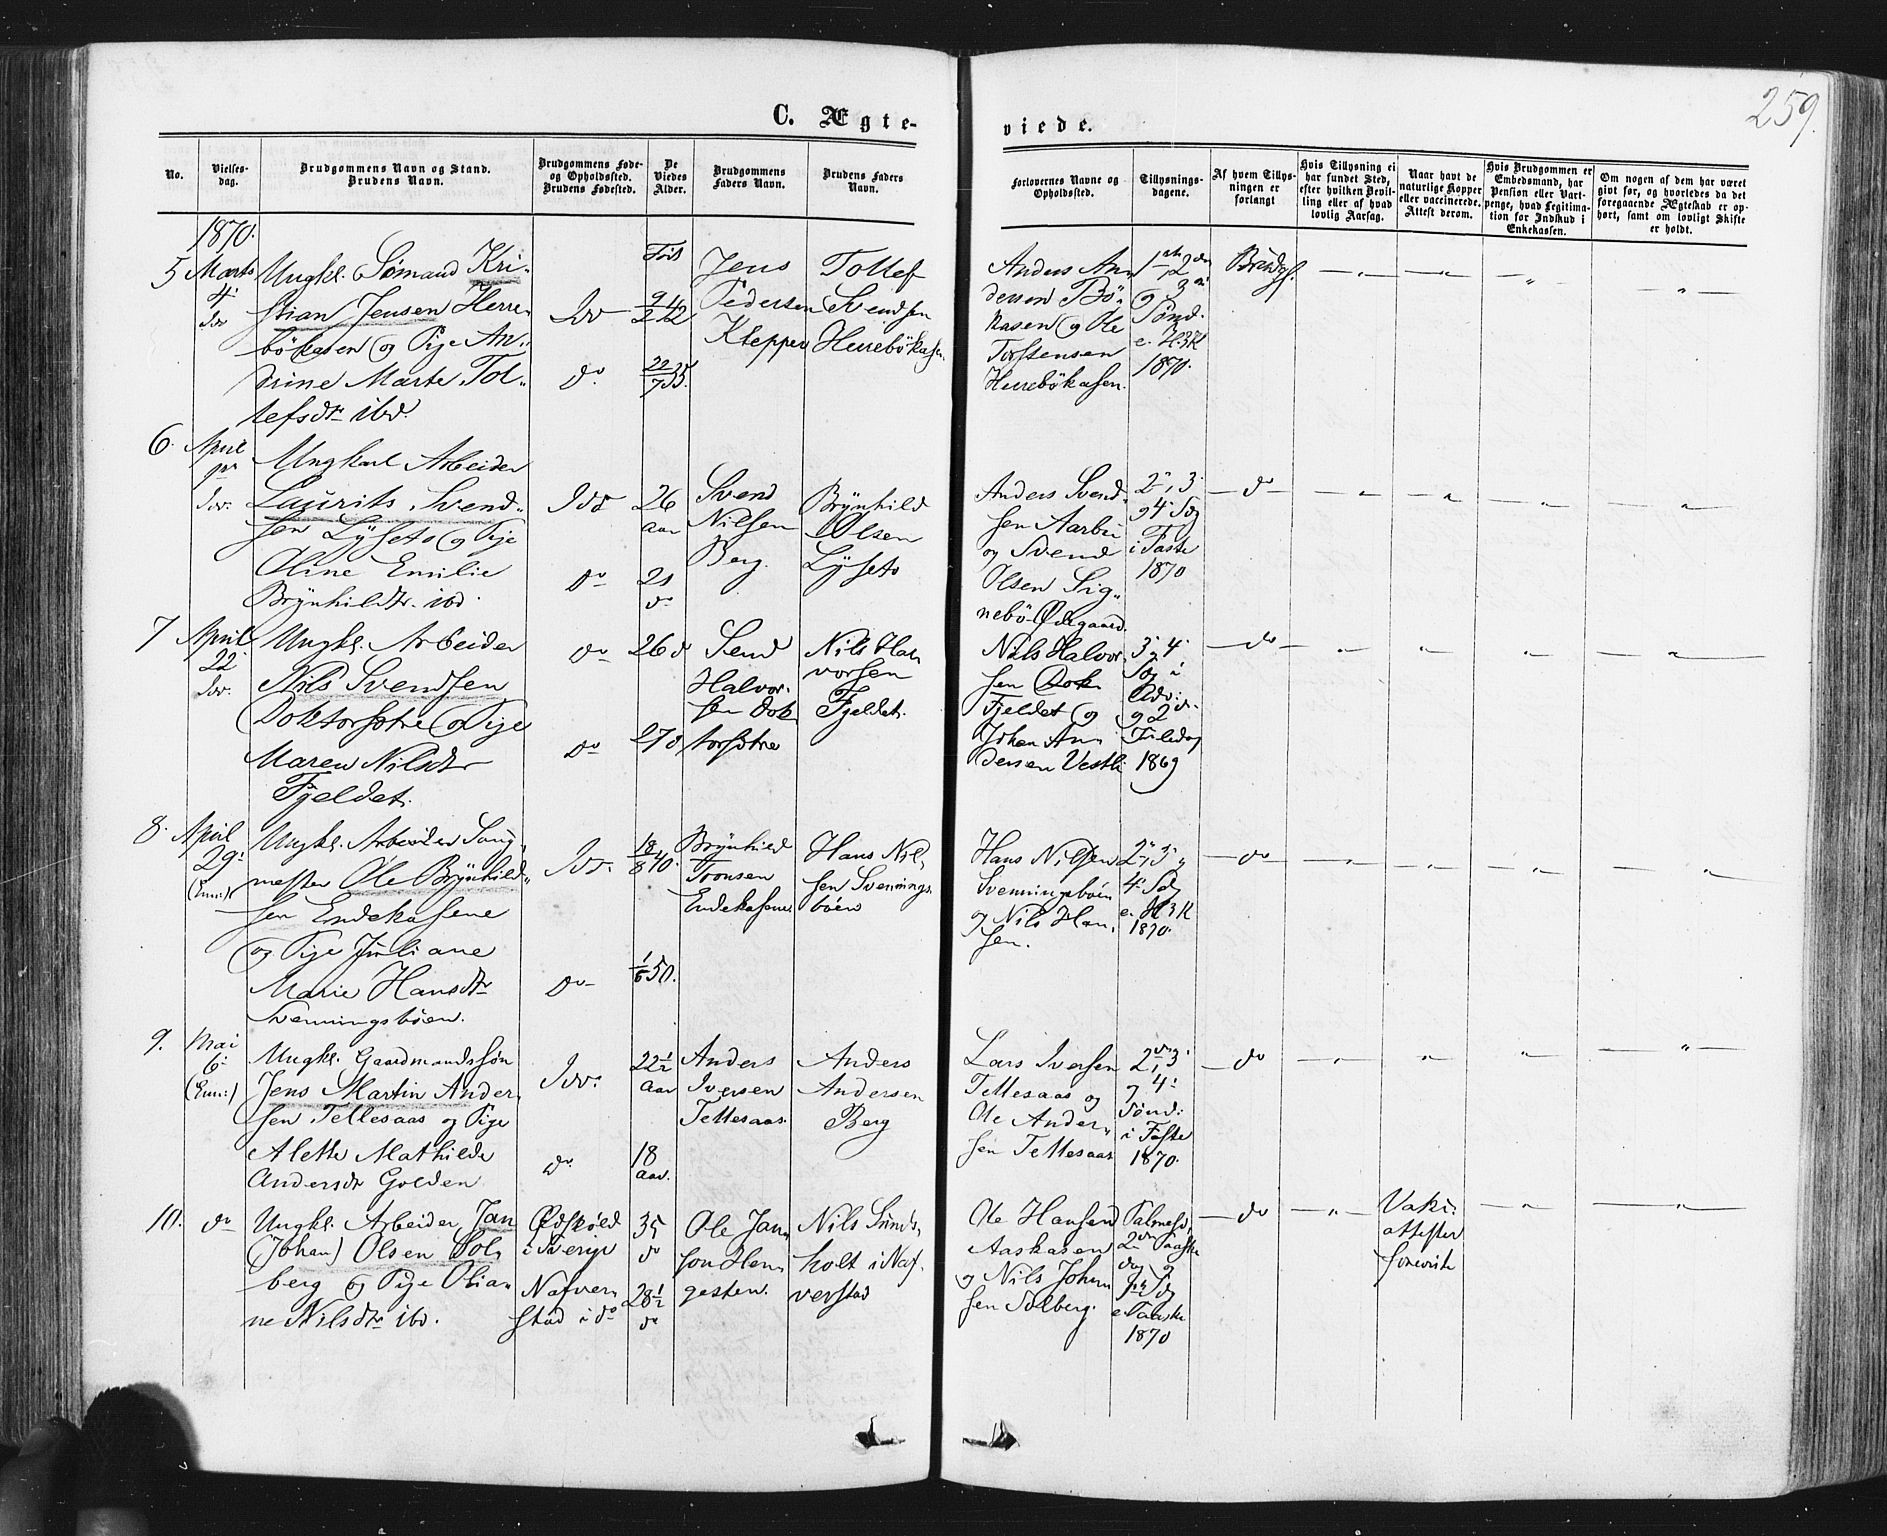 259.
C. Ægte-
viede.
No.
Vielses-
dag.
Brudgommens Navn og Stand.
Brudens Navn.
Brudgommens Føde-
og Opholdssted.
Brudens Fødested.
De
Viedes
Alder.
Brudgommens
Faders Navn.
Brudens Faders
Navn.
Forlovernes Navne og
Opholdssted.
Tillysnings-
dagene.
Af hvem Tillys-
ningen er
forlangt
Hvis Tillysning ei
har fundet Sted,
efter hvilken Bevil-
ling eller af hvad
lovlig Aarsag.
Naar havt de
naturlige Kopper
eller vaccinerede.
Attest derom.
Hvis Brudgommen er
Embedsmand, har
Pension eller Vart-
penge, hvad Legitima-
tion for Indskud i
Enkekassen.
Om nogen af dem har været
givt før, og hvorledes da det
foregaaende Ægteskab er op-
hørt, samt om lovligt Skifte
er holdt.
1870.
5
Marts
4.
Idd
Ungkl. Sømand Kri-
stian Jensen Herre-
bökasen og Pige An-
drine Marte Tol-
lefsdtr ibd.
Idd
do
Født
9/2 42
20/7 35.
Jens
Pedersen
Klepper
Tollef
Svendsen
Herrebökasen
Anders An-
dersen Bö-
kasen og Ole
Torstensen
Herrebökasen.
1ste, 2den
og 3die
Sönd.
e. H3K
1870.
Brudg.
— „ —
— „ —
„
— „ —
6.
April
1ste
Idd.
Ungkarl Arbeider
Laurits Svend-
sen Lyseto og Pige
Oline Emilie
Brynhildtr. ibd.
Idd
do
26
Aar
21
do
Svend
Nilsen
Berg.
Brynhild
Olsen
Lyseto
Anders Svend-
sen Aarbu
og Svend
Olsen Sig-
nebö Ødegaard.
2den, 3.
og 4. Sdg
i Faste
1870
— do —
— „ —
— „ —
— „ —
— „ —
7
April
22.
Idd.
Ungkl. Arbeider
Nils Svendsen
Doktorsstre og Pige
Maren Nilsdtr
Fjeldet.
do
do
26 d
27 d
Send
Halvor-
sen Dok-
torsstre
Nils Hal-
vorsen
Fjeldet.
Nils Halvor-
sen
Fjeldet og
Johan An-
dersen Vestli
3. 4.
Sdg i
Adv:
og 2d.
Juledag
1869
— do —
— „ —
— „ —
— „ —
— „ —
8.
April
29.
(Enn:)
Ungkl. Arbeider Sang-
mester Ole Brynhild-
sen Endekasene
og Pige Juliane
Marie Hansdtr
Svenningsböen.
Idd.
do
18/8 40.
1/6 50.
Brynhild
Tronsen
Endekasene
Hans Nil-
sen Svennings-
böen
Hans Nilsen
Svenningsböen
og Nils Han-
sen.
2den, 3.
4. Sdg
e. H3K
1870.
— do —
— „ —
— „ —
— „ —
— „ —
9.
Mai
6.
(Enn:)
Ungkl. Gaardmandssøn
Jens Martin Ander-
sen Tellesaas og Pige
Alette Mathilde
Andersdtr Golden
Idd.
do
22½
Aar
18
Aar.
Anders
Iversen
Tellesaas.
Anders
Andersen
Berg
Lars Iversen
Tellesaas og
Ole Ander-
sen Tellesaas
2den, 3.
og 4.
Sönd:
i Faste
1870.
— do
— „ —
— „ —
— „ —
— „ —
10.
do
Ungkl. Arbeider Jan
(Johan) Olsen Sol-
berg og Pige Olia-
ne Nilsdtr ibd.
Ødskøld
i Sverige
Nafver-
stad i do
35
do
28½
do
Ole Jan-
son Hen-
gesten.
Nils Sund-
holt i Naf-
verstad
Ole Hansen
Aaskasen
og Nils Johan-
sen Solberg.
Palmesd,
2den Paaske
dag og
1ste Sdg
e. Paaske
1870
— do —
— „ —
Vakc:
attester
foreviste
— „ —
— „ —